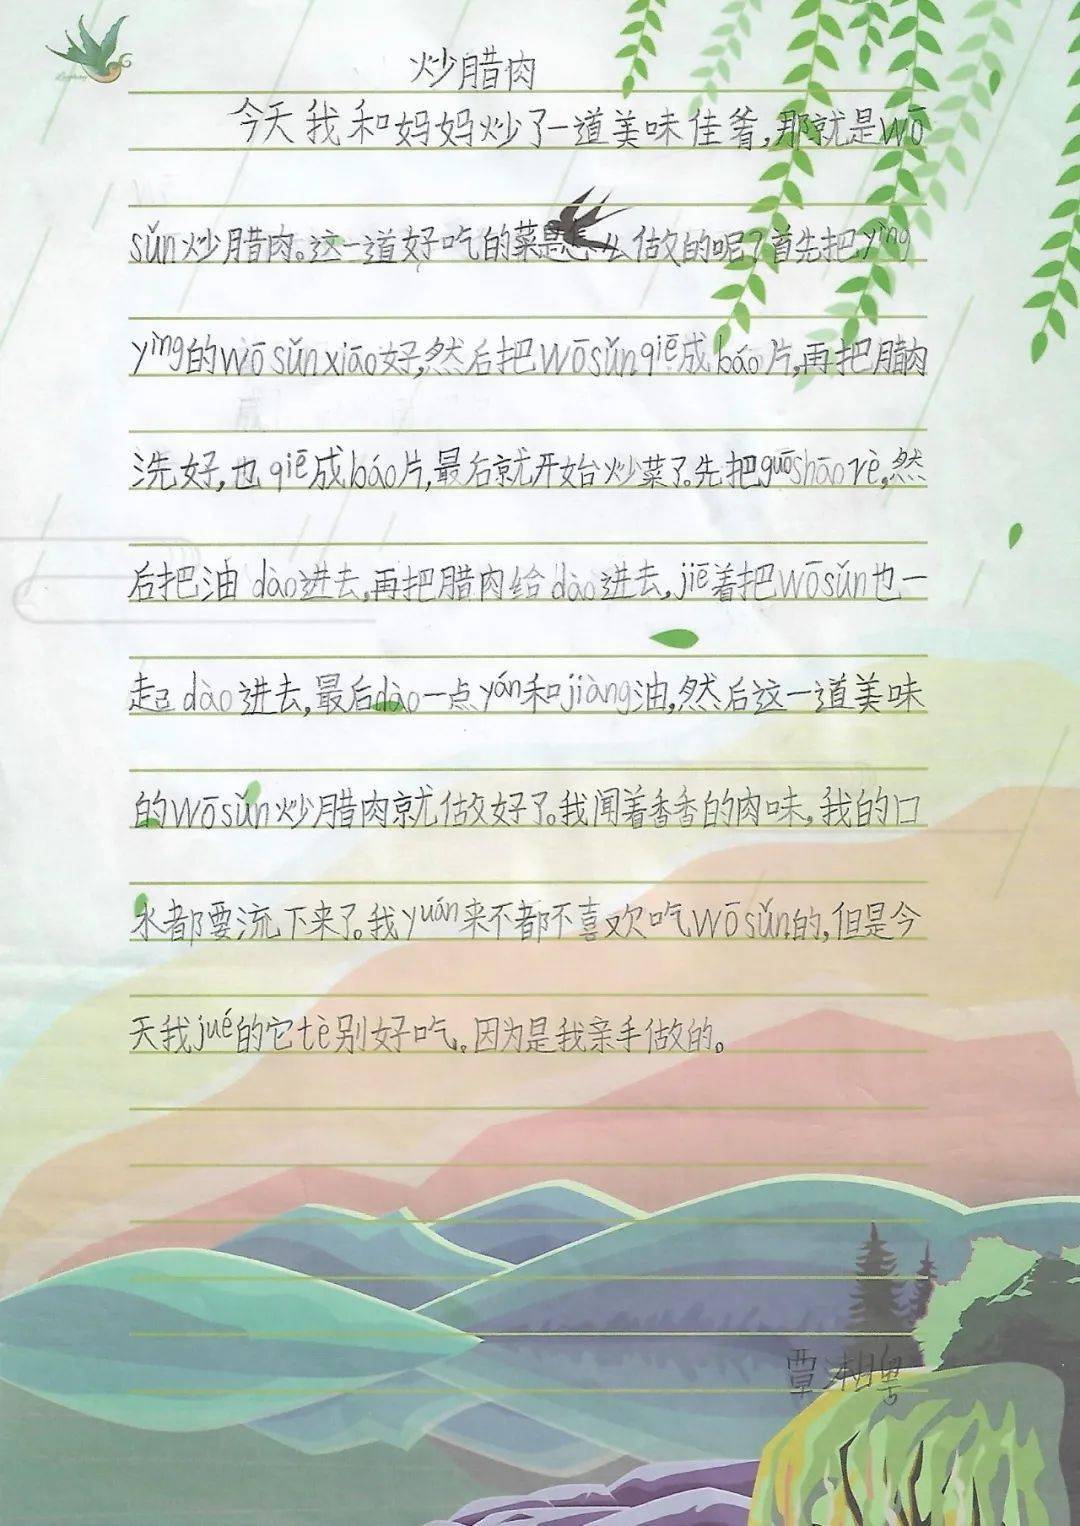 炒腊肉
今天我和妈妈炒了一道美味佳肴,那就是wō
sǔn炒腊肉。这一道好吃的菜是怎么做的呢?首先把yìng
yìng的wō sǔn xiāo好,然后把wōsǔn qiē成báo片,再把腊肉
洗好,也qiē成báo片,最后就开始炒菜了。先把guōshāo rè,然
后把油dào进去,再把腊肉给dào进去,jiē着把wōsǔn也一
起dào进去,最后dào一点yán和jiàng油,然后这一道美味
的wōsǔn炒腊肉就做好了。我闻着香香的肉味,我的口
水都要流下来了。我yuán来不都不喜欢吃wōsǔn的,但是今
天我jué的它tè别好吃。因为是我亲手做的。
覃湘粤